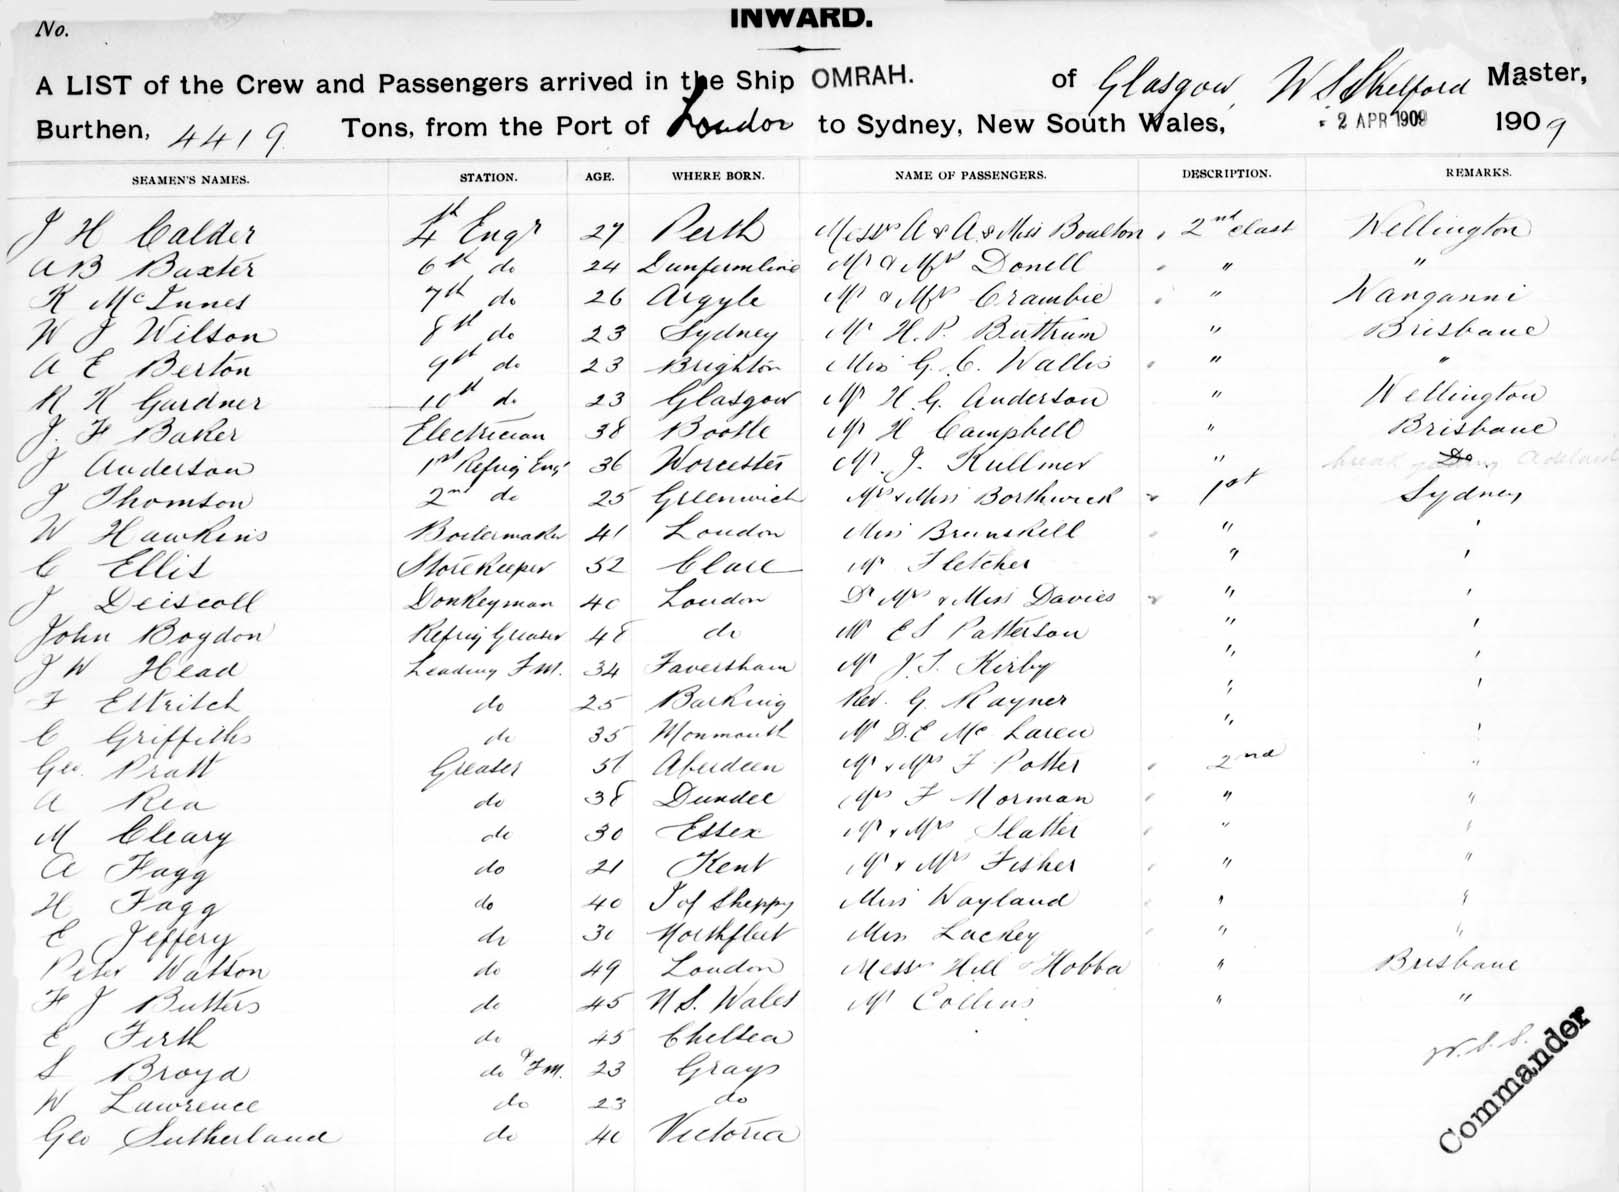 No.
INWARD.
A LIST of the Crew and Passengers arrived in the Ship OMRAH. of Glasgow, W S Shelford Master,
Burthen, 4419 Tons, from the Port of London to Sydney, New South Wales, 2 APR 1909 1909
SEAMEN'S NAMES. STATION. AGE. WHERE BORN. NAME OF PASSENGERS. DESCRIPTION. REMARKS.
J H Calder 4th Engr 27 Perth Messrs A & A & Miss Boulton 2nd class Wellington
A B Baxter 6th do 24 Dunfermline Mr & Mrs Donell " "
K McInnes 7th do 26 Argyle Mr & Mrs Crambie " Wanganni
W J Wilson 8th do 23 Sydney Mr H. P. Buttrum " Brisbane
A E Berton 9th do 23 Brighton Miss G. C. Wallis " "
R K Gardner 10th do 23 Glasgow Mr H. G. Anderson " Wellington
J. F Baker Electrician 38 Bootle Mr H Campbell " Brisbane
J Anderson 1st Refrig Engr 36 Worcester Mr J. Kullmer " Do
J Thomson 2nd do 25 Greenwich Mrs & Miss Borthwick 1st Sydney
W Hawkins Boilermaker 41 London Miss Brunskell " "
C Ellis Storekeeper 52 Clare Mr Fletcher " "
J Driscoll Donkeyman 40 London Dr Mrs & Miss Davies " "
John Boydon Refrig Greaser 48 do Mr E S Patterson " "
J W Head Leading F.M. 34 Faversham Mr J. S. Kirby " "
F Ettritch do 25 Barking Rev. G. Rayner " "
C Griffiths do 35 Monmouth Mr D. E McLaren " "
Geo. Pratt Greaser 51 Aberdeen Mr & Mrs F Potter 2nd "
A Rea do 38 Dundee Mrs F Norman " "
M Cleary do 30 Essex Mr & Mrs Slatter " "
A Fagg do 21 Kent Mr & Mrs Fisher " "
H Fagg do 40 I of Sheppy Miss Wayland " "
E Jeffery do 30 Northfleet Miss Lackey " "
Peter Watson do 49 London Messrs Hill & Hobba " Brisbane
F J Butters do 45 N S. Wales Mr Collins " "
E Firth do 45 Chelsea
S Broyd do & F.M. 23 Grays W. S. S.
W Lawrence do 23 do
Geo Sutherland do 40 Victoria
Commander